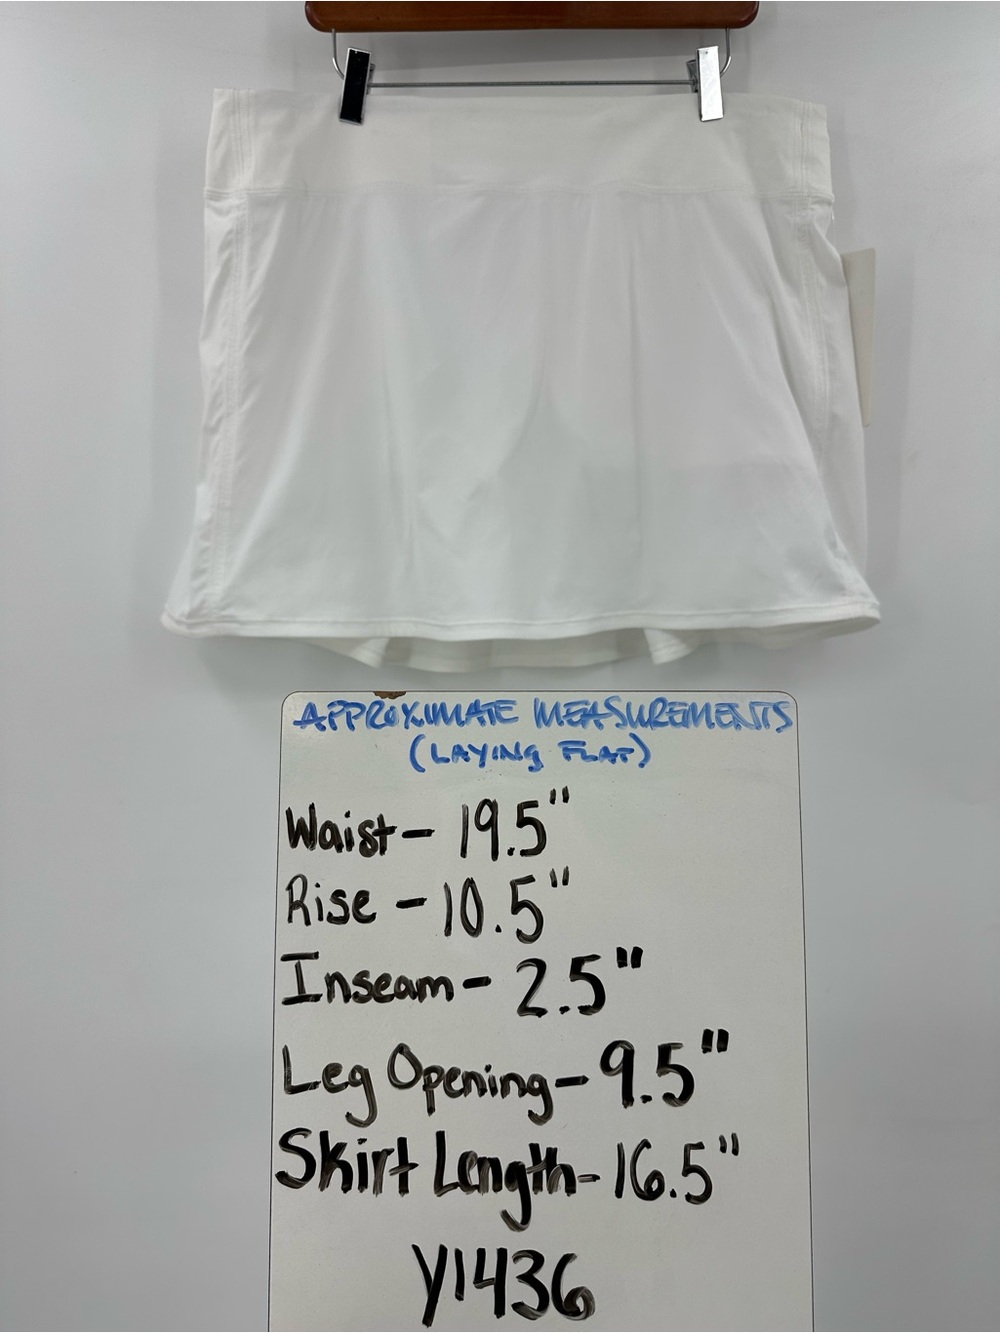 APPROXIMATE MEASUREMENTS
(LAYING FLAT)
Waist - 19.5"
Rise - 10.5"
Inseam - 2.5"
Leg Opening - 9.5"
Skirt Length - 16.5"
Y1436